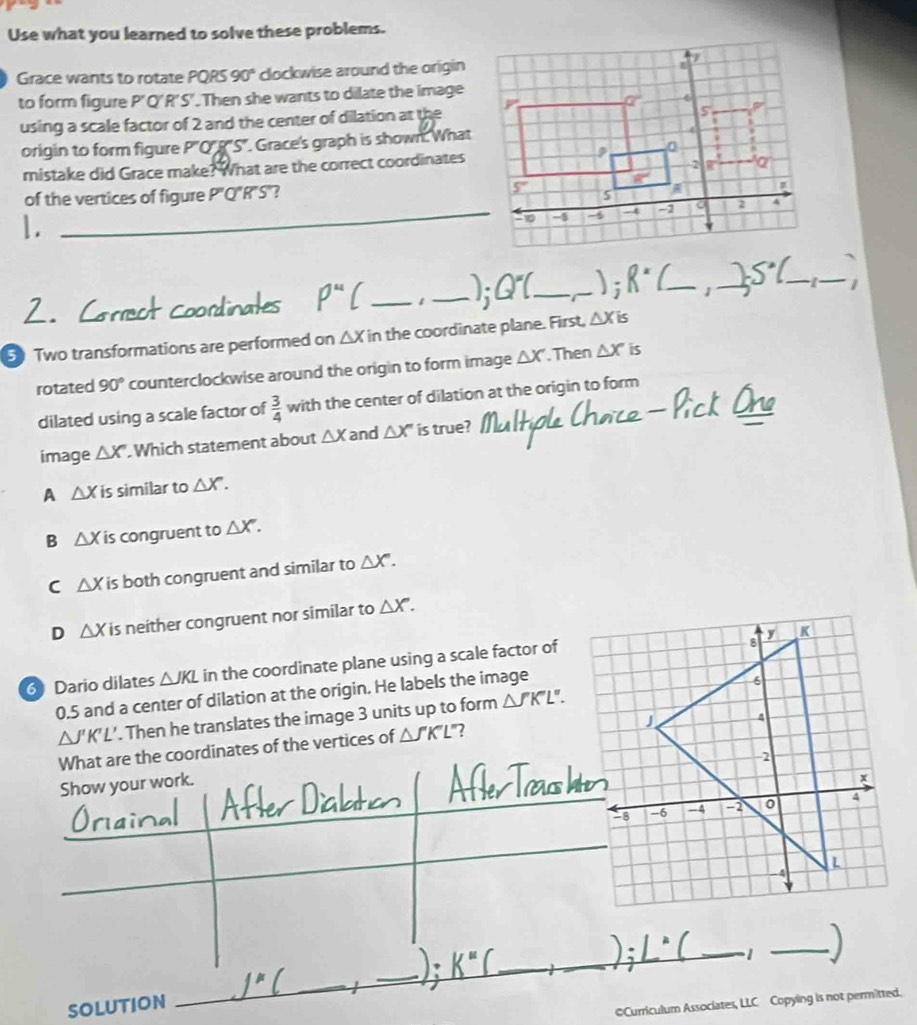 Use what you learned to solve these problems.
Grace wants to rotate PQRS 90° clockwise around the origin
to form figure P'Q'R'S'. Then she wants to dilate the image
using a scale factor of 2 and the center of dilation at the
origin to form figure P"Q"R"S". Grace's graph is shown. What
mistake did Grace make? What are the correct coordinates
of the vertices of figure P"Q"R"S"?
y
6
P" Q" S' P'
P Q
2 R' Q'
S" R"
S R
-10 -8 -6 -4 -2 0 2 4
1.
2. Correct coordinates P"( __ , __ ); Q"( __ , __ ); R"( __ , __ ); S"( __ , __ );
5 Two transformations are performed on △X in the coordinate plane. First, △X is
rotated 90° counterclockwise around the origin to form image △X'. Then △X' is
dilated using a scale factor of 3/4 with the center of dilation at the origin to form
image △X". Which statement about △X and △X" is true? Multiple Choice - Pick One
A △X is similar to △X".
B △X is congruent to △X".
C △X is both congruent and similar to △X".
D △X is neither congruent nor similar to △X".
6 Dario dilates △JKL in the coordinate plane using a scale factor of
0.5 and a center of dilation at the origin. He labels the image
△J'K'L'. Then he translates the image 3 units up to form △J"K"L".
What are the coordinates of the vertices of △J"K"L"?
Show your work.
8 y K
6
J 4
2
x
-8 -6 -4 -2 0 4
L
-4
Oriainal After Dialation After Translation
J"( __ , __ ); K"( __ , __ ); L"( __ , __ )
SOLUTION
©Curriculum Associates, LLC Copying is not permitted.